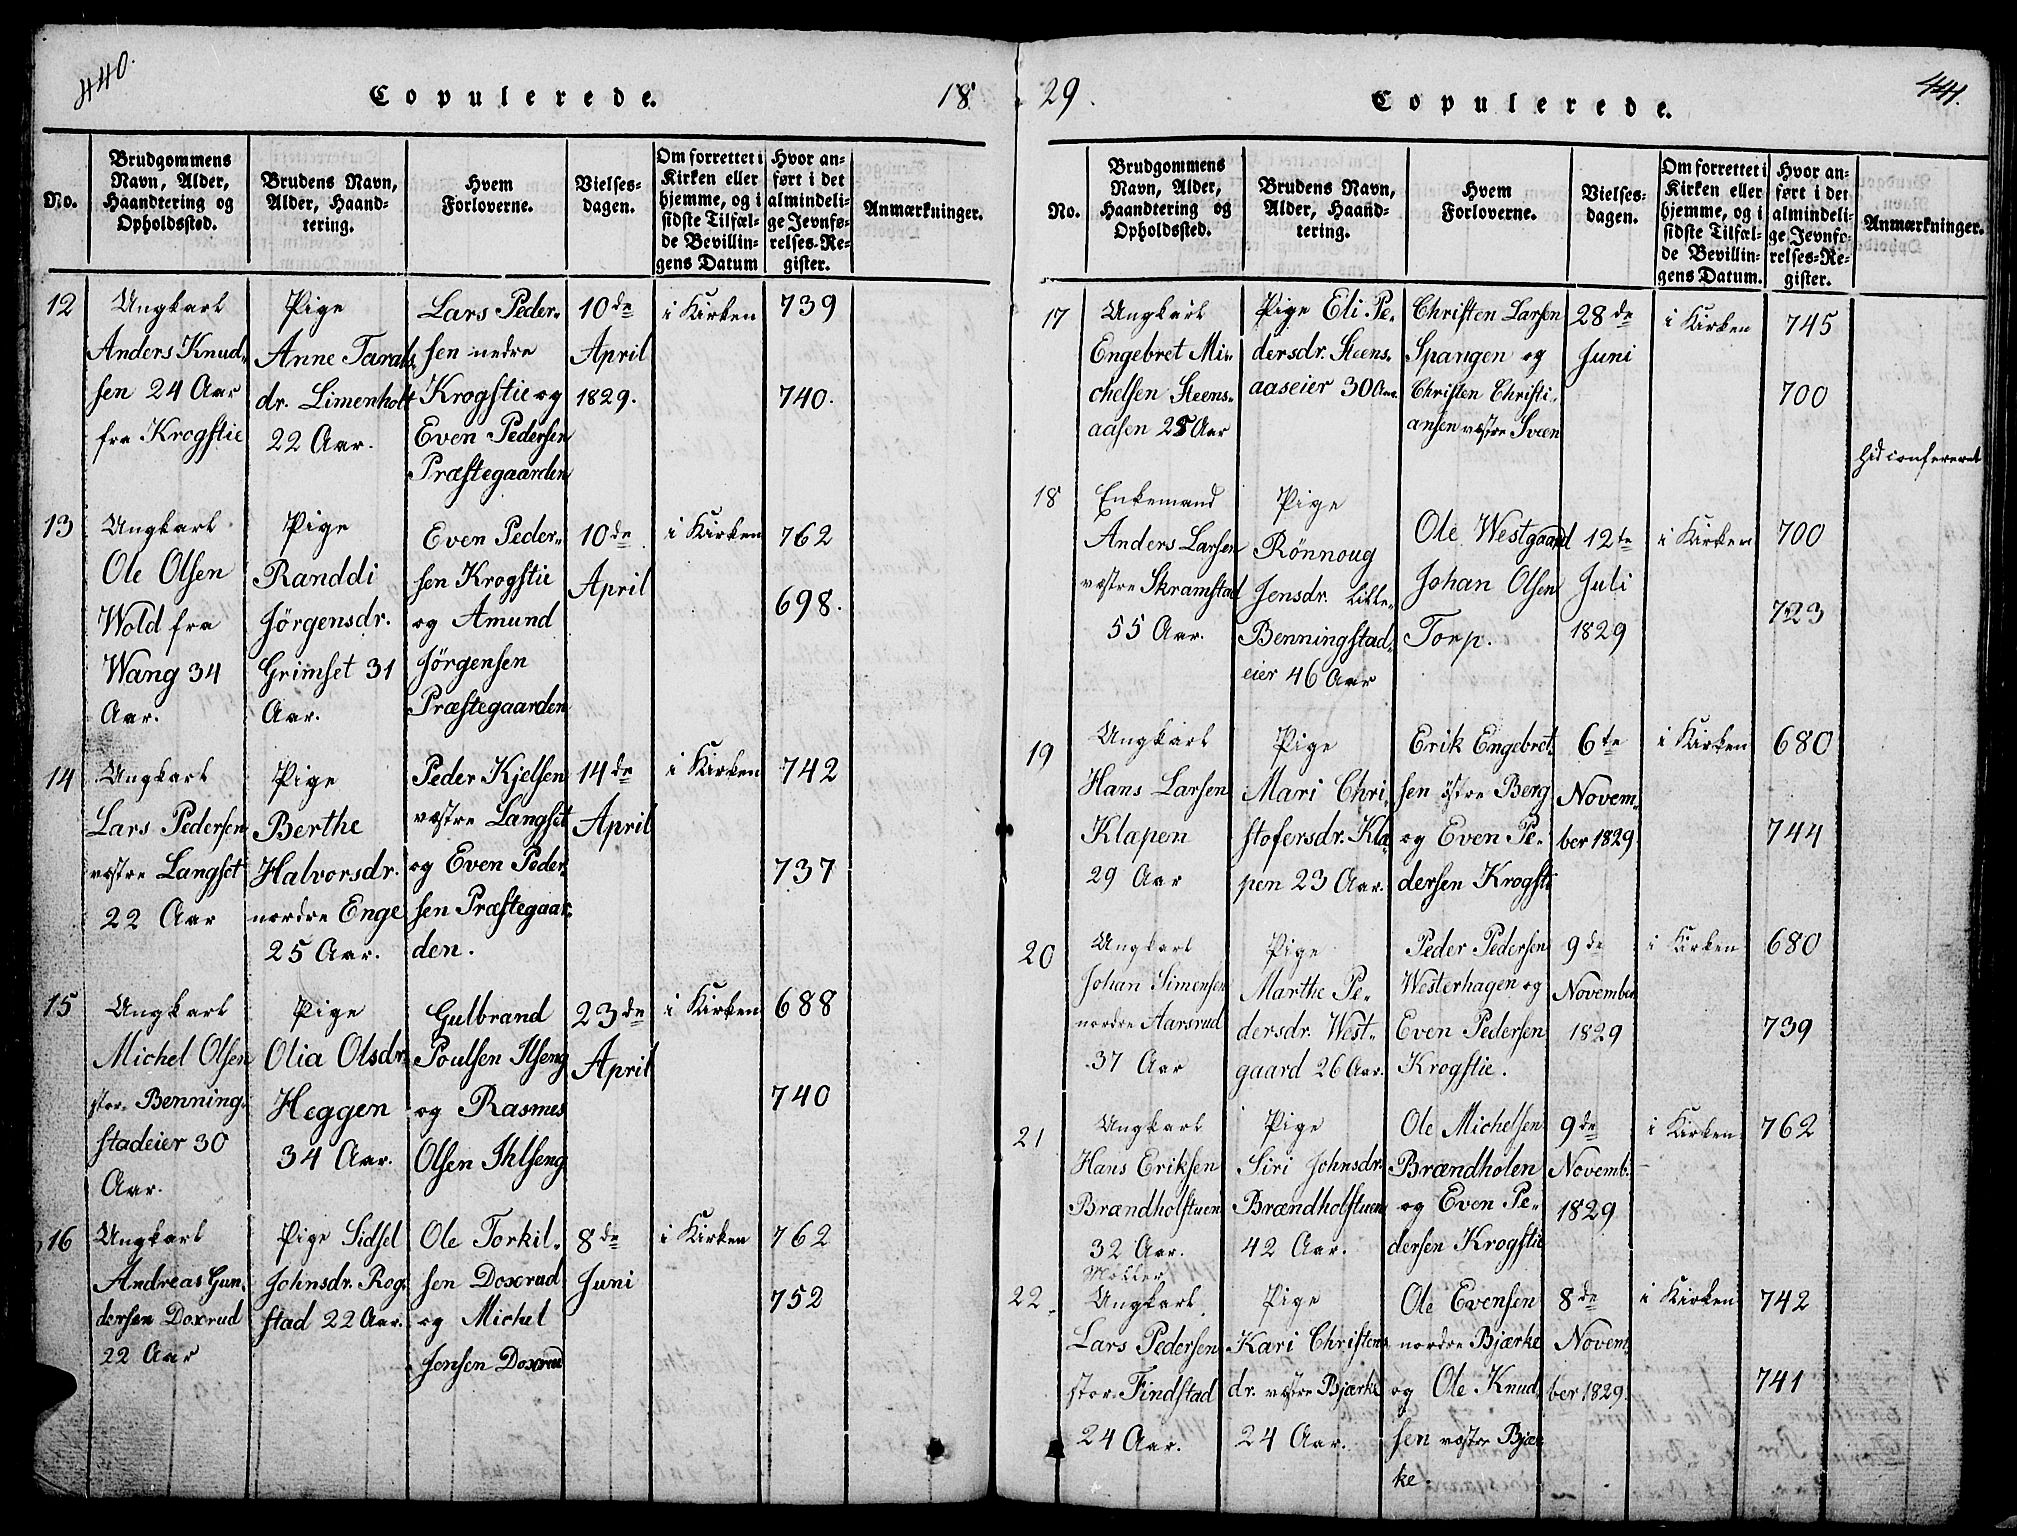 440.
Copulerede.
18
No.
Brudgommens
Navn, Alder,
Haandtering og
Opholdssted.
Brudens Navn,
Alder, Haand-
tering.
Hvem
Forloverne.
Vielses-
dagen.
Om forrettet i
Kirken eller
hjemme, og i
sidste Tilfæl-
de Bevillin-
gens Datum
Hvor an-
ført i det
almindeli-
ge Jevnfø-
relses-Re-
gister.
Anmærkninger.
12
Ungkarl
Anders Knud-
sen 24 Aar
fra Krogstie
Pige
Anne Taralds
dr. Limenholt
22 Aar.
Lars Peder-
sen nedre
Krogstie og
Even Pedersen
Præstegaarden
10de
April
1829.
i Kirken
739
740.
13
Ungkarl
Ole Olsen
Wold fra
Wang 34
Aar.
Pige
Randdi
Jörgensdr.
Grimset 31
Aar.
Even Peder-
sen Krogstie
og Amund
Jörgensen
Præstegaarden
10de
April
i Kirken
762
698.
14
Ungkarl
Lars Pedersen
vestre Langset
22 Aar
Pige
Berthe
Halvorsdr.
nordre Enge
25 Aar.
Peder Kjelsen
vestre Langset
og Even Peder
sen Præstegaar-
den.
14de
April
i Kirken
742
737
15
Ungkarl
Michel Olsen
stor-Benning-
stadeier 30
Aar.
Pige
Olia Olsdr.
Heggen
34 Aar.
Gulbrand
Poulsen Ilseng
og Rasmes
Olsen Ihlseng
23de
April
i Kirken
688
740
16
Ungkarl
Andreas Gun-
dersen Doxrud
22 Aar
Pige Sidsel
Johnsdr. Rog-
stad 22 Aar.
Ole Torkil-
sen Doxrud
og Michel
Jensen Doxrud
8de
Juni
i Kirken
762
752
29.
Copulerede.
441.
No.
Brudgommens
Navn, Alder,
Haandtering og
Opholdssted.
Brudens Navn,
Alder, Haand-
tering.
Hvem
Forloverne.
Vielses-
dagen.
Om forrettet i
Kirken eller
hjemme, og i
sidste Tilfæl-
de Bevillin-
gens Datum.
Hvor an-
ført i det
almindeli-
ge Jevnfø-
relses-Re-
gister.
Anmærkninger.
17
Ungkarl
Engebret Mi-
chelsen Steens-
aasen 25 Aar
Pige Eli Pe-
dersdr. Steens-
aaseier 30 Aar.
Christen Larsen
Spangen og
Christen Christi-
ansen vestre Sveen
28de
Juni
i Kirken
745
700
hid confereret
18
Enkemand
Anders Larsen
vestre Skramstad
55 Aar.
Pige
Rönnoug
Jensdr. Lille-
Benningstad-
eier 46 Aar
Ole Westgaard
Johan Olsen
Torp.
12te
Juli
1829
i Kirken
700
723
19
Ungkarl
Hans Larsen
Klapen
29 Aar
Pige
Mari Chri-
stofersdr. Kla-
pen 23 Aar.
Erik Engebret-
sen östre Berg
og Even Pe-
dersen Krogsti
6te
Novem-
ber 1829
i Kirken
680
744
20
Ungkarl
Johan Simensen
nordre Aarsrud
37 Aar
Pige
Marthe Pe-
dersdr. West-
gaard 26 Aar.
Peder Pedersen
Westerhagen og
Even Pedersen
Krogstie.
9de
November
1829
i Kirken
680
739
21
Ungkarl
Hans Eriksen
Brændholstuen
32 Aar.
Pige
Siri Johnsdr.
Brændholstuen
42 Aar.
Ole Michelsen
Brændholen
og Even Pe-
dersen Krogstie
9de
Novemb.
1829
i Kirken
762
22.
Möller
Ungkarl
Lars Pedersen
stor-Findstad
24 Aar.
Pige
Kari Christens
dr. vestre Bjærke
24 Aar.
Ole Evensen
nordre Bjærke
og Ole Knud-
sen vestre Bjær-
ke
8de
Novem-
ber 1829.
i Kirken
742
741